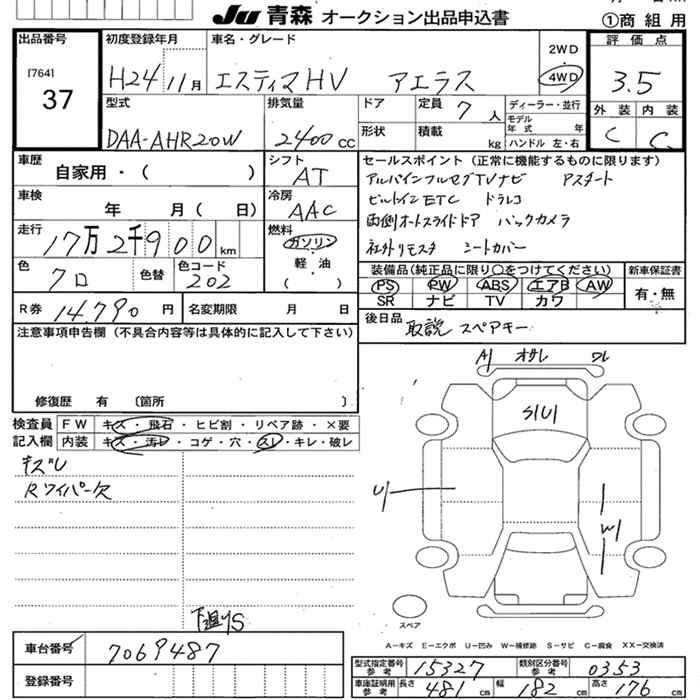 JU 青森 オークション出品申込書
①商組用
出品番号 [764] 37
初度登録年月 H24 11月
車名・グレード エスティマHV アエラス
2WD
4WD
評価点 3.5
外装 内装
C C
型式 DAA-AHR20W
排気量 2400 CC
ドア 定員 7 人
形状 積載 kg
ディーラー・並行
モデル年式 年
ハンドル 左・右
車歴 自家用・( )
シフト AT
車検 年 月( 日)
冷房 AAC
走行 17万2千900 km
燃料 ガソリン
軽・油
( )
色 クロ 色替 色コード 202
R券 14,790 円 名変期限 月 日
セールスポイント(正常に機能するものに限ります)
アルパインフルセグTVナビ Aスタート
ビルトインETC ドラレコ
両側オートスライドドア バックカメラ
社外リモスタ シートカバー
装備品(純正品に限り○をつけてください) 新車保証書
PS PW ABS エアB AW 有・無
SR ナビ TV カワ
後日品 取説 スペアキー
注意事項申告欄(不具合内容等は具体的に記入して下さい)
修復歴 有 〔箇所 〕
検査員 FW キズ・飛石・ヒビ割・リペア跡・×要
記入欄 内装 キズ・汚レ・コゲ・穴・スレ・キレ・破レ
キズレ
Rワイパー欠
下廻りS
A1 オサレ ワレ
S1U1
U1
W1
スペア
A-キズ E-エクボ U-凹み W-補修跡 S-サビ C-腐食 XX-交換済
車台番号 7069487
登録番号
型式指定番号 参考 15327 類別区分番号 参考 0353
車庫証明用 参考 長さ 481 cm 幅 182 cm 高さ 176 cm